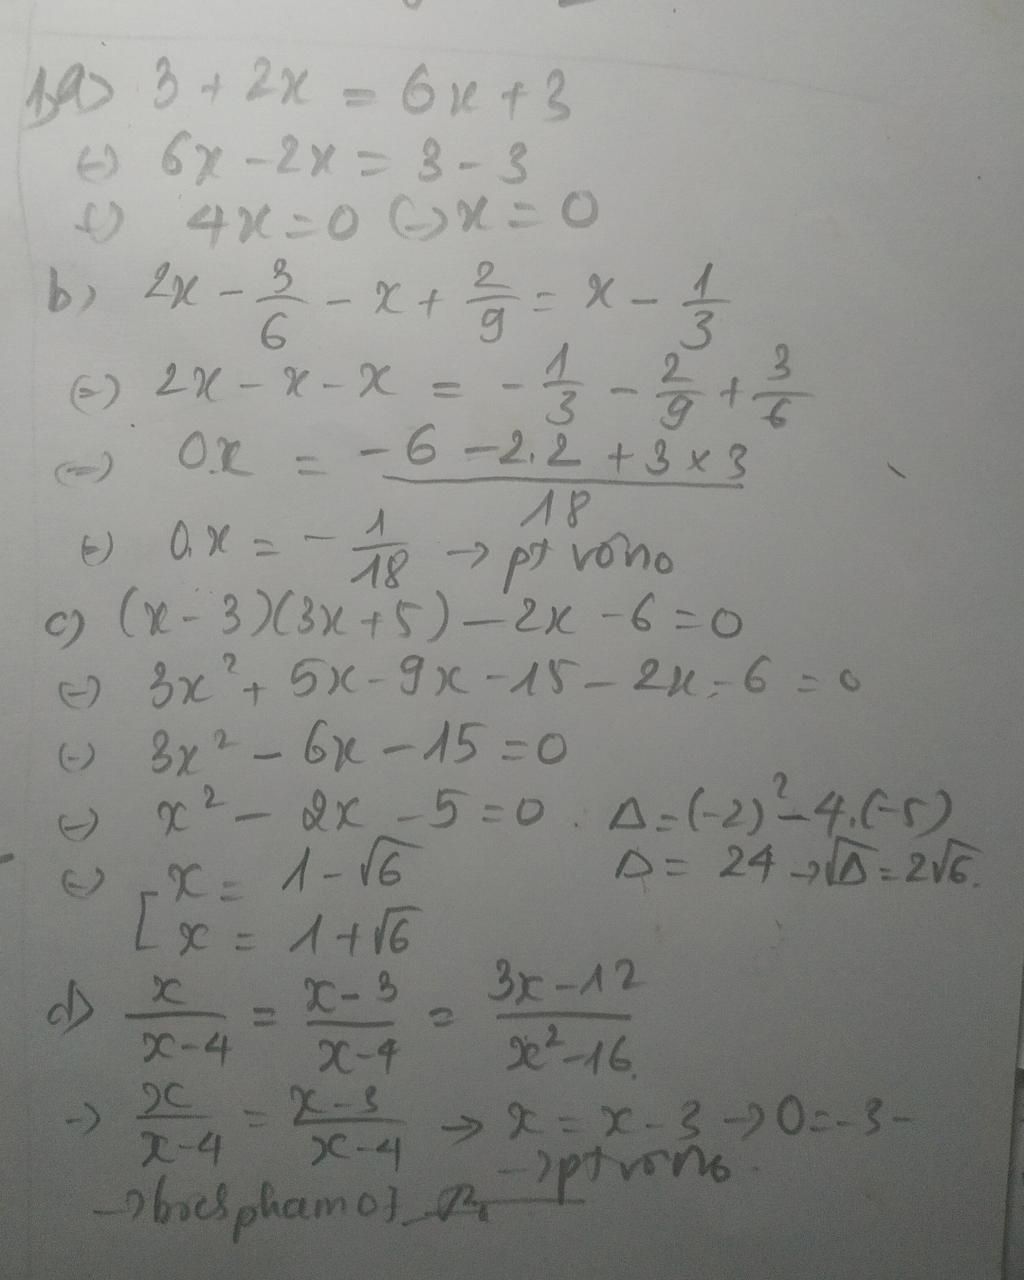 1,a) 3 + 2x = 6x + 3
(=) 6x - 2x = 3 - 3
(=) 4x = 0 (=) x = 0
b) 2x - 3/6 - x + 2/9 = x - 1/3
(=) 2x - x - x = - 1/3 - 2/9 + 3/6
(=) 0.x = (-6 - 2.2 + 3 × 3)/18
(=) 0.x = - 1/18 → pt vô no
c) (x - 3)(3x + 5) - 2x - 6 = 0
(=) 3x² + 5x - 9x - 15 - 2x - 6 = 0
(=) 3x² - 6x - 15 = 0
(=) x² - 2x - 5 = 0. Δ = (-2)² - 4.(-5)
(=) [x = 1 - √6 Δ = 24 → √Δ = 2√6.
[x = 1 + √6
d) x/(x-4) = (x-3)/(x-4) = (3x-12)/(x²-16)
→ x/(x-4) = (x-3)/(x-4) → x = x - 3 → 0 = -3 -
→ pt vô no.